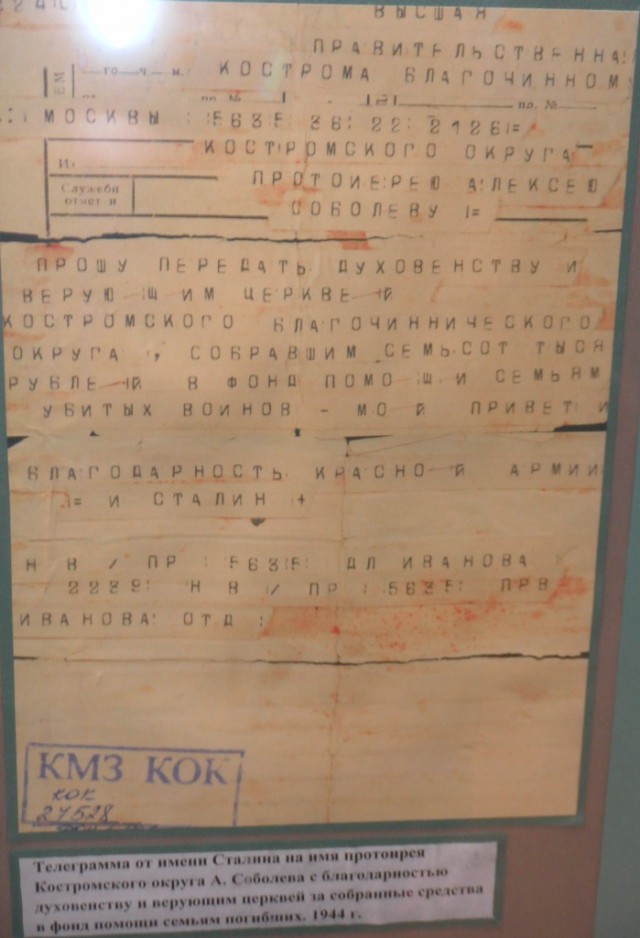 ВЫСШАЯ
ПРАВИТЕЛЬСТВЕННА
го ч. м.
КОСТРОМА БЛАГОЧИННОМ
МОСКВЫ 5635 36 22 2126 =
КОСТРОМСКОГО ОКРУГА
ПРОТОИЕРЕЮ АЛЕКСЕЮ
Служебн
отмет и
СОБОЛЕВУ =
ПРОШУ ПЕРЕДАТЬ ДУХОВЕНСТВУ И
ВЕРУЮ Щ ИМ ЦЕРКВЕ Й
КОСТРОМСКОГО БЛАГОЧИННИЧЕСКОГО
ОКРУГА , СОБРАВШИМ СЕМЬСОТ ТЫСЯ
РУБЛЕ Й В ФОНД ПОМО Щ И СЕМЬЯМ
УБИТЫХ ВОИНОВ - МО Й ПРИВЕТ И
БЛАГОДАРНОСТЬ КРАСНО Й АРМИИ
= И СТАЛИН +
Н В / ПР 5635 ДЛ ИВАНОВА
2239 Н В / ПР 5635 ПРВ
ИВАНОВА ОТД
КМЗ КОК
КОК
27528
Телеграмма от имени Сталина на имя протоирея
Костромского округа А. Соболева с благодарностью
духовенству и верующим церквей за собранные средства
в фонд помощи семьям погибших. 1944 г.